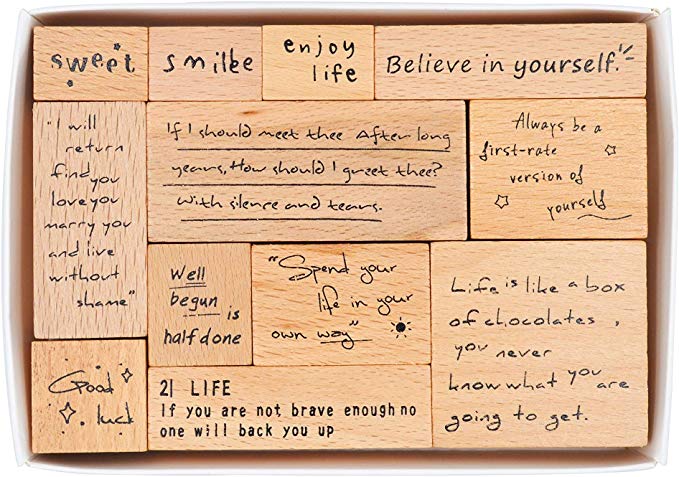 sweet
smilee
enjoy
life
Believe in yourself.
"I will
return
find you
love you
marry you
and live
without
shame"
If I should meet thee After long
years, How should I greet thee?
With silence and tears.
Always be a
first-rate
version of
yourself
Well
begun is
half done
"Spend your
life in your
own way"
Life is like a box
of chocolates,
you never
know what you are
going to get.
Good
luck
21 LIFE
If you are not brave enough no
one will back you up